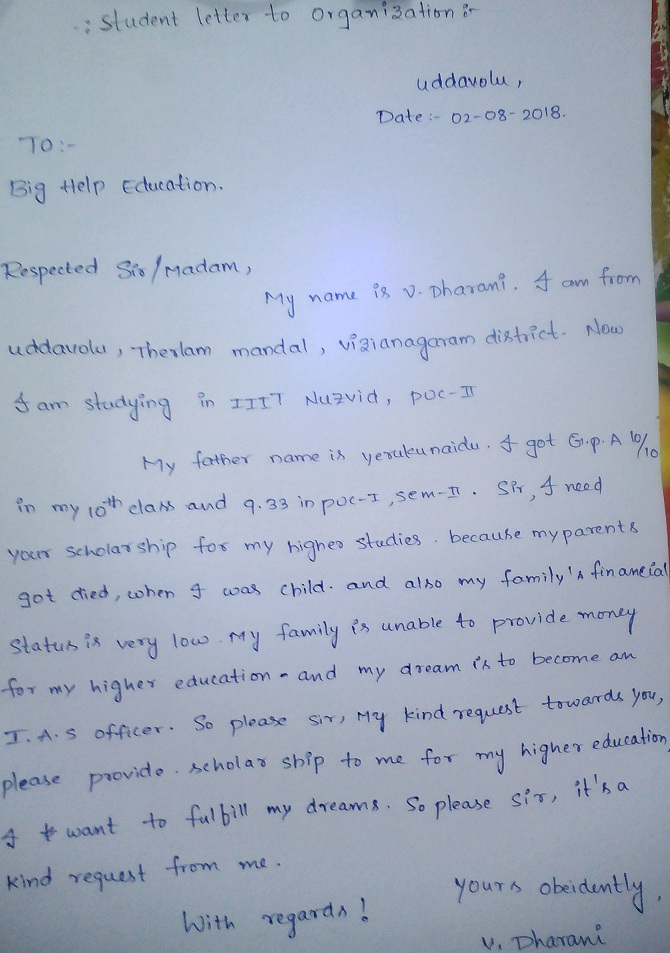 .: Student letter to Organization :-
uddavolu,
Date :- 02-08-2018.
TO :-
Big Help Education.
Respected Sir/Madam,
My name is V. Dharani. I am from
uddavolu, Therlam mandal, vizianagaram district. Now
I am studying in IIIT Nuzvid, puc-II
My father name is yerukunaidu. I got G.p.A 10/10
in my 10th class and 9.33 in puc-I, sem-II. Sir, I need
your scholarship for my higher studies. because my parents
got died, when I was child. and also my family's financial
Status is very low. My family is unable to provide money
for my higher education - and my dream is to become an
I.A.S officer. So please sir, My kind request towards you,
please provide. scholar ship to me for my higher education,
I want to fulfill my dreams. So please sir, it's a
kind request from me.
With regards!
yours obeidently,
V. Dharani